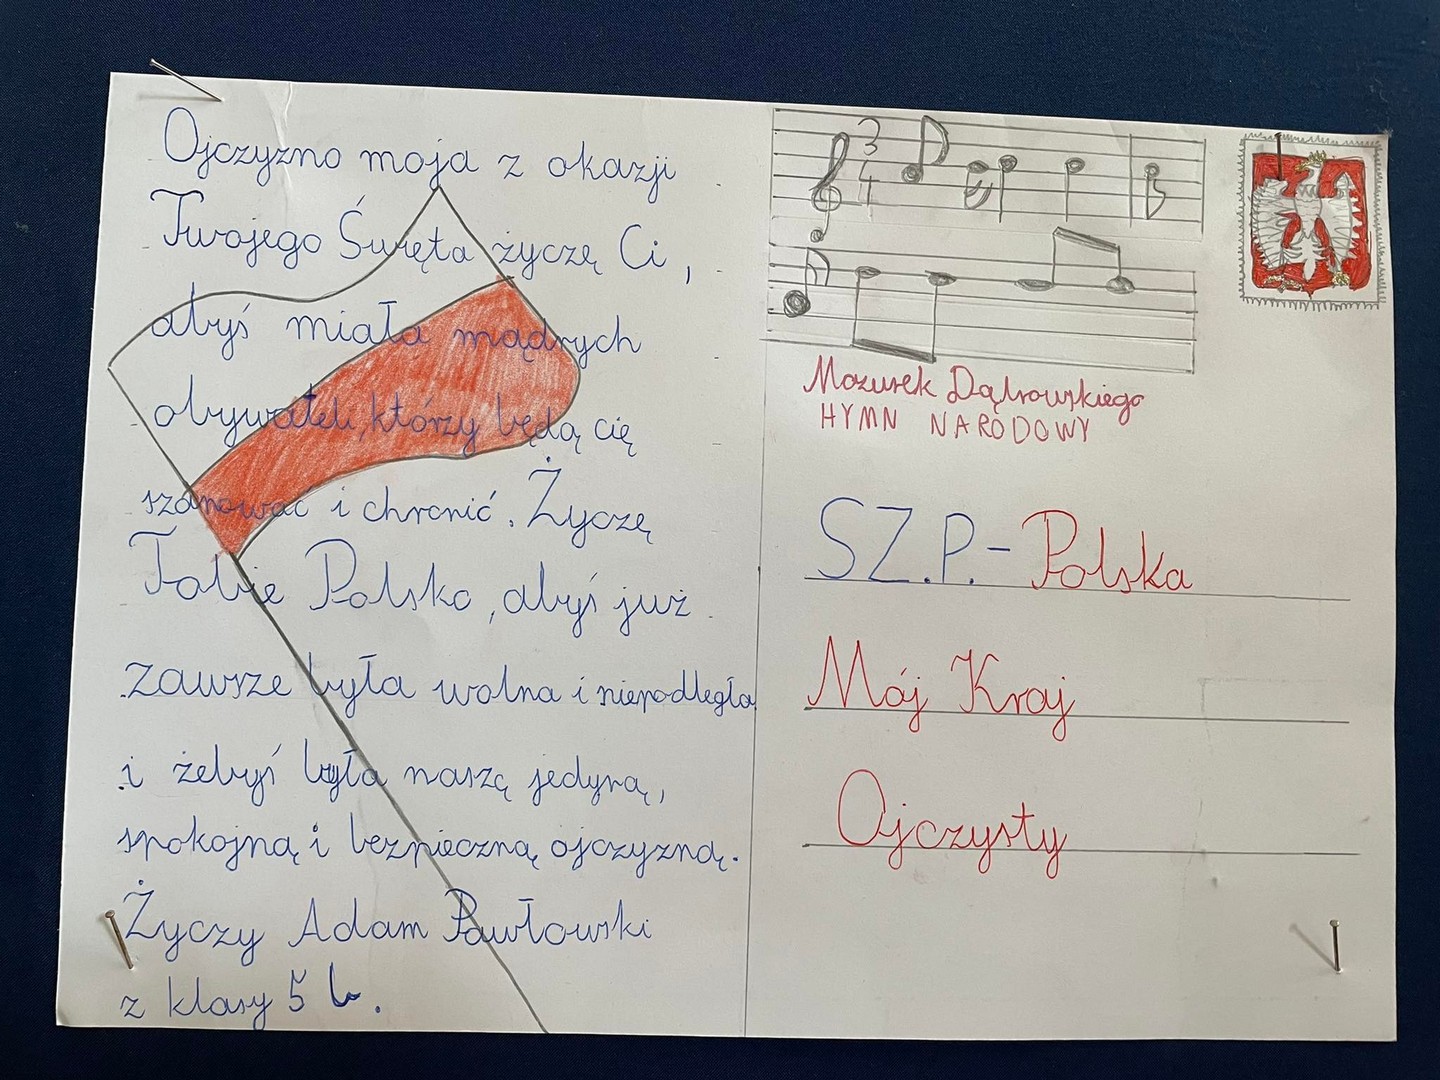 Ojczyzno moja z okazji
Twojego Święta życzę Ci,
abyś miała mądrych
obywateli, którzy będą cię
szanować i chronić. Życzę
Tobie Polsko, abyś już
zawsze była wolna i niepodległa
i żebyś była naszą jedyną,
spokojną i bezpieczną ojczyzną.
Życzy Adam Pawłowski
z klasy 5 b.
3
4
Mazurek Dąbrowskiego
HYMN NARODOWY
SZ.P.- Polska
Mój Kraj
Ojczysty